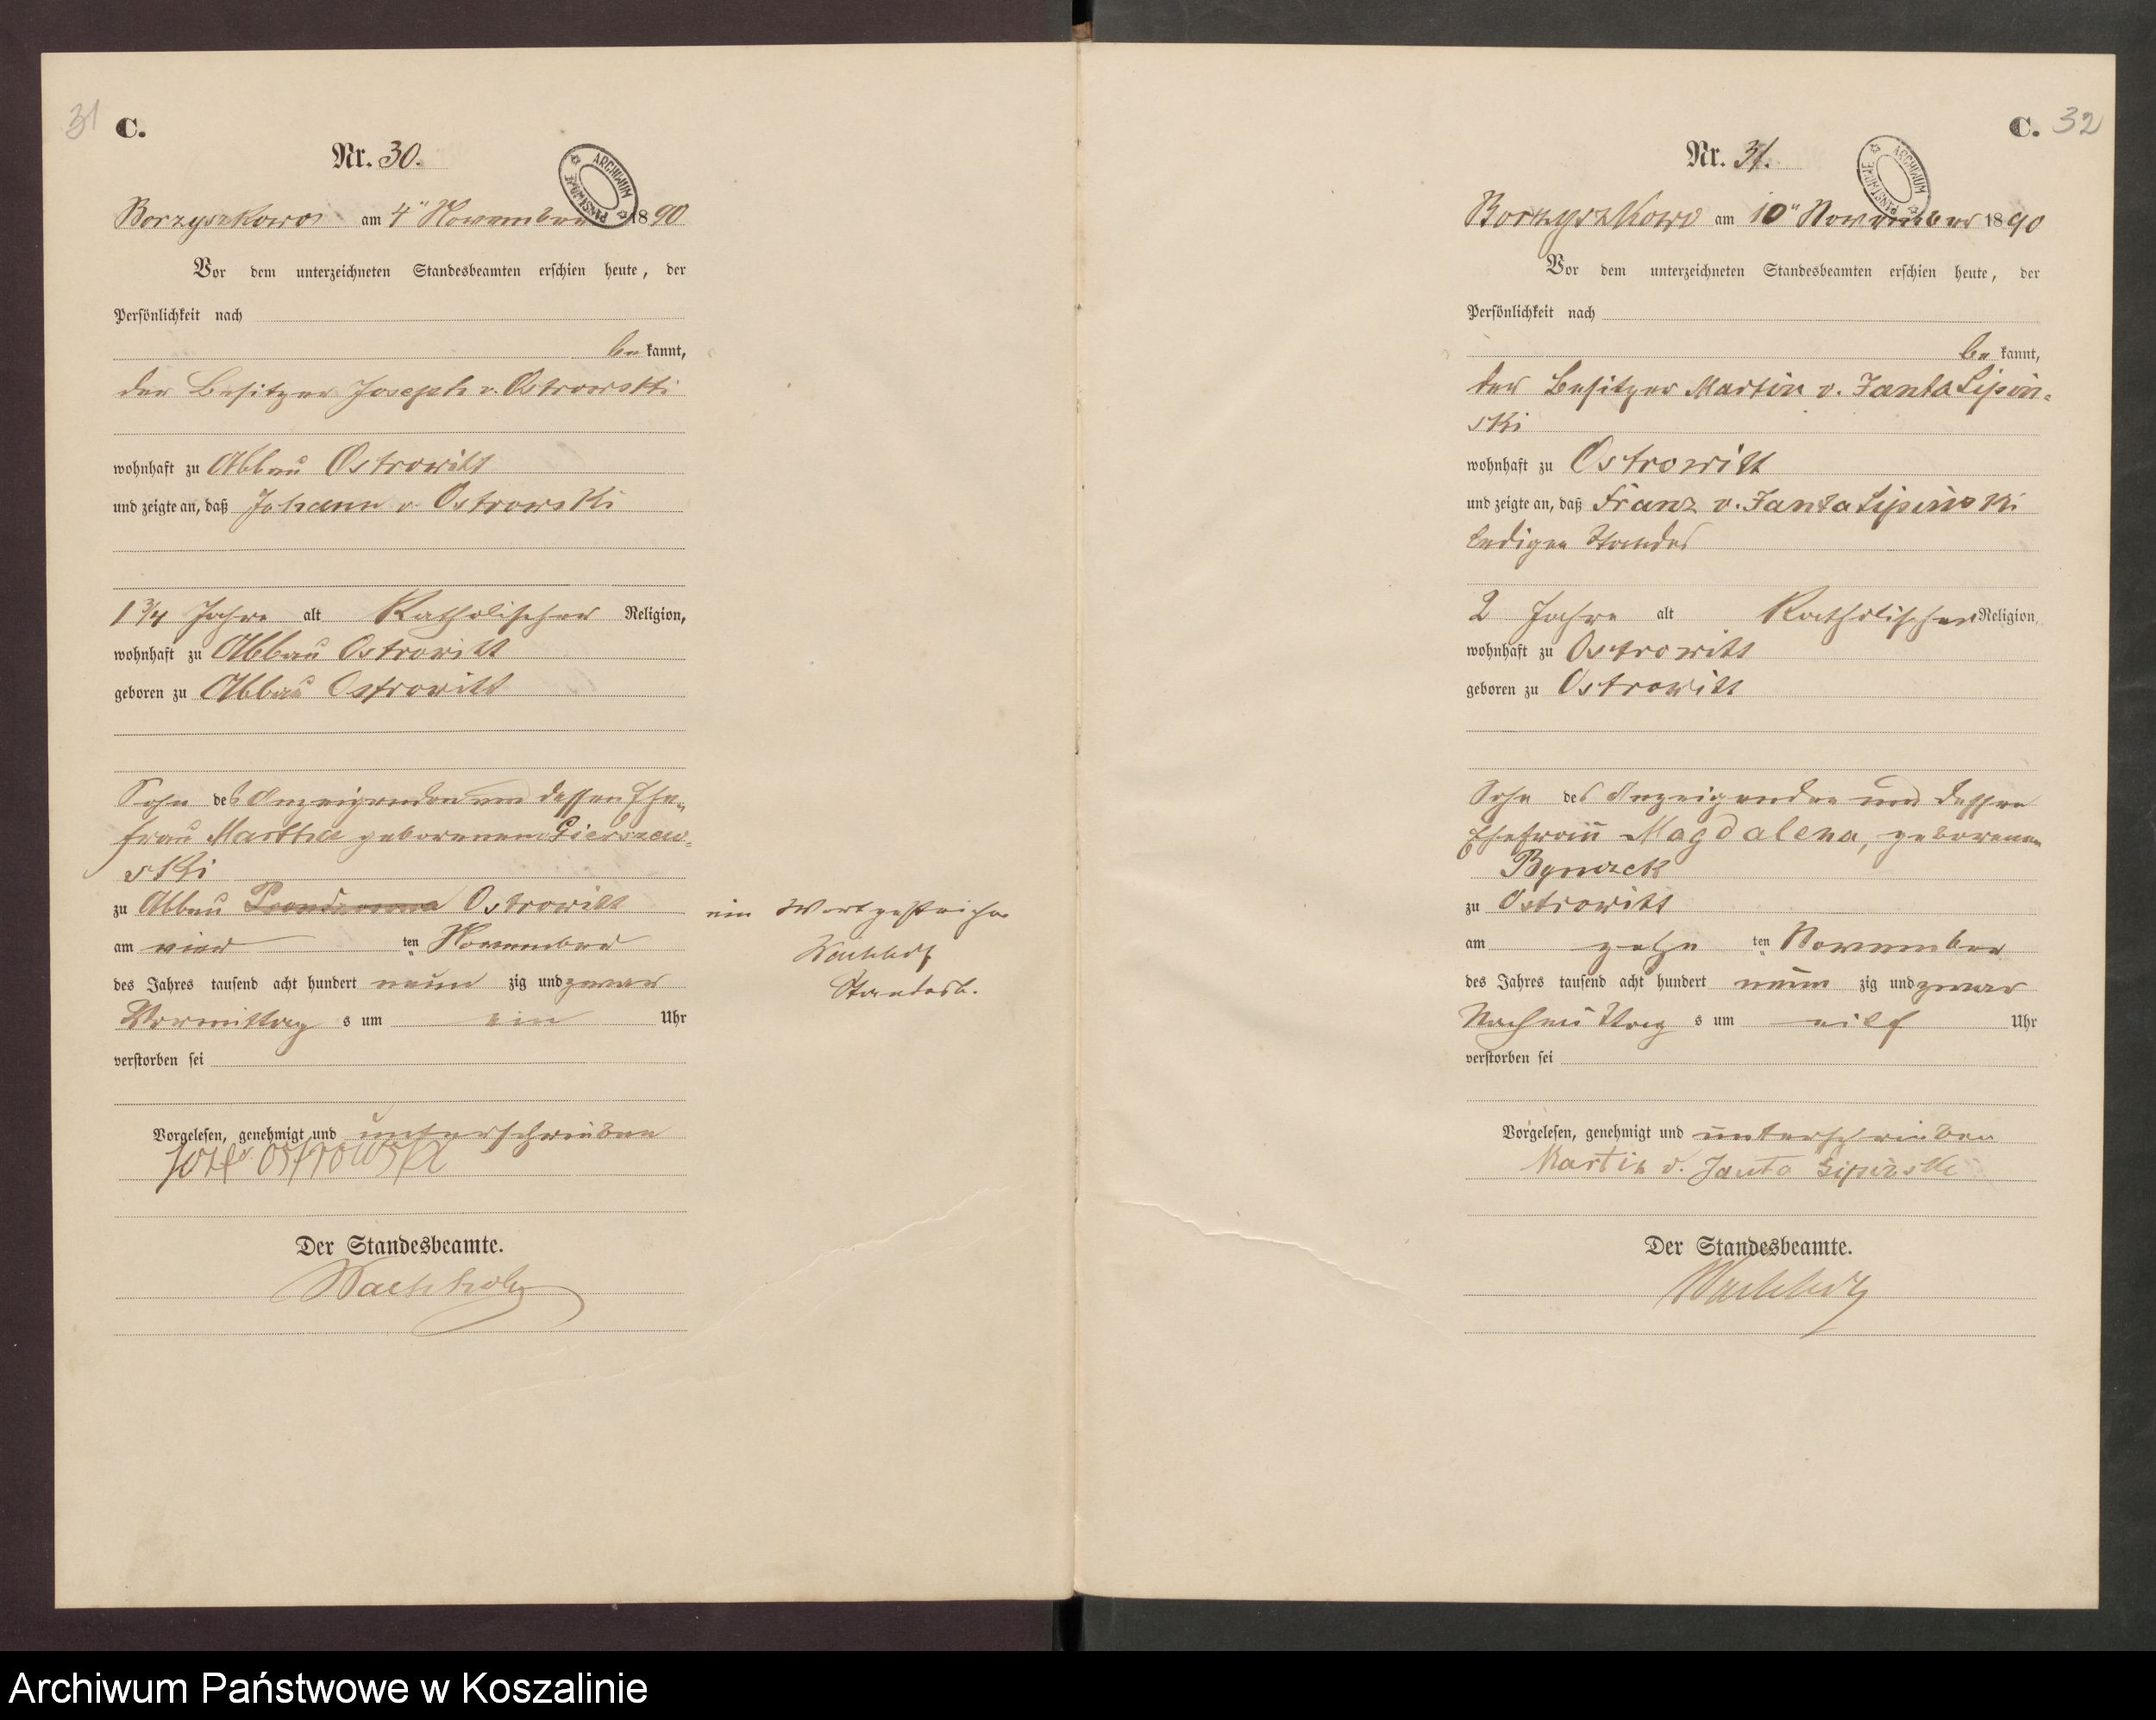 31 C.
Nr. 30.
ARCHIWUM PAŃSTWOWE
Borzyszkowo am 4" November 1890
Vor dem unterzeichneten Standesbeamten erschien heute, der
Persönlichkeit nach
be kannt,
der Besitzer Joseph v. Ostrowski
wohnhaft zu Abbau Ostrowitt
und zeigte an, daß Johann v. Ostrowski
1 3/4 Jahre alt Katholischer Religion,
wohnhaft zu Abbau Ostrowitt
geboren zu Abbau Ostrowitt
Sohn des Anzeigenden und dessen Ehe-
frau Martha geborenen Gierszew-
ski
zu Abbau Ostrowitt
am vier ten November
des Jahres tausend acht hundert neun zig und zwar
Vormittag s um ein Uhr
verstorben sei
Vorgelesen, genehmigt und unterschrieben
Ostrowski
Der Standesbeamte.
Wachholz
ein Wort gestrichen
Wachholz
Standesb.
C. 32
Nr. 31.
ARCHIWUM PAŃSTWOWE
Borzyszkowo am 10" November 1890
Vor dem unterzeichneten Standesbeamten erschien heute, der
Persönlichkeit nach
be kannt,
der Besitzer Martin v. Janta Lipin-
ski
wohnhaft zu Ostrowitt
und zeigte an, daß Franz v. Janta Lipinski
ledigen Standes
2 Jahre alt Katholischer Religion,
wohnhaft zu Ostrowitt
geboren zu Ostrowitt
Sohn des Anzeigenden und dessen
Ehefrau Magdalena, geborenen
zu Ostrowitt
am zehn ten November
des Jahres tausend acht hundert neun zig und zwar
Nachmittag s um eilf Uhr
verstorben sei
Vorgelesen, genehmigt und unterschrieben
Martin v. Janta Lipinski
Der Standesbeamte.
Wachholz
Archiwum Państwowe w Koszalinie